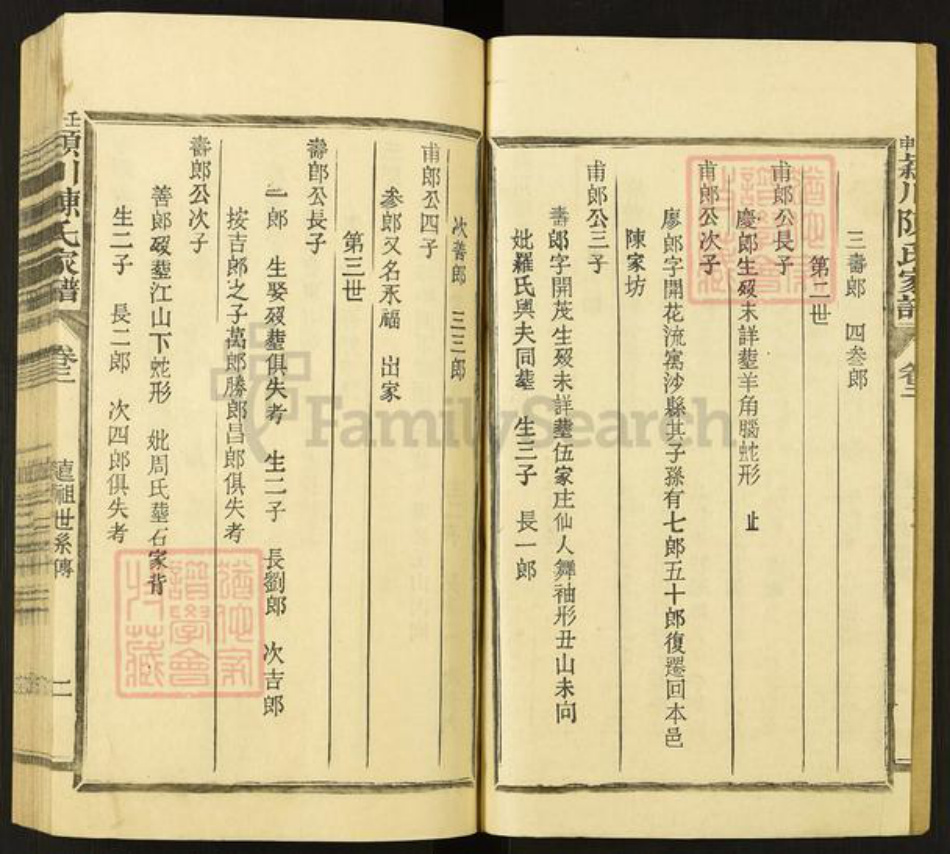 三壽郎 四叁郎
第二世
甫郎公長子
慶郎生歿未詳塟羊角腦虵形 止
甫郎公次子
廖郎字開花流寓沙縣其子孫有七郎五十郎復遷回本邑
陳家坊
甫郎公三子
壽郎字開茂生歿未詳塟伍家庄仙人舞袖形丑山未向
妣羅氏與夫同塟 生三子 長一郎
次善郎 三三郎
甫郎公四子
叁郎又名永福 出家
第三世
壽郎公長子
一郎 生娶歿塟俱失考 生二子 長劉郎 次吉郎
按吉郎之子萬郎勝郎昌郎俱失考
壽郎公次子
善郎歿塟江山下虵形 妣周氏塟石家背
生二子 長二郎 次四郎俱失考
潁川陳氏家譜 卷二 遠祖世系傳 二
FamilySearch